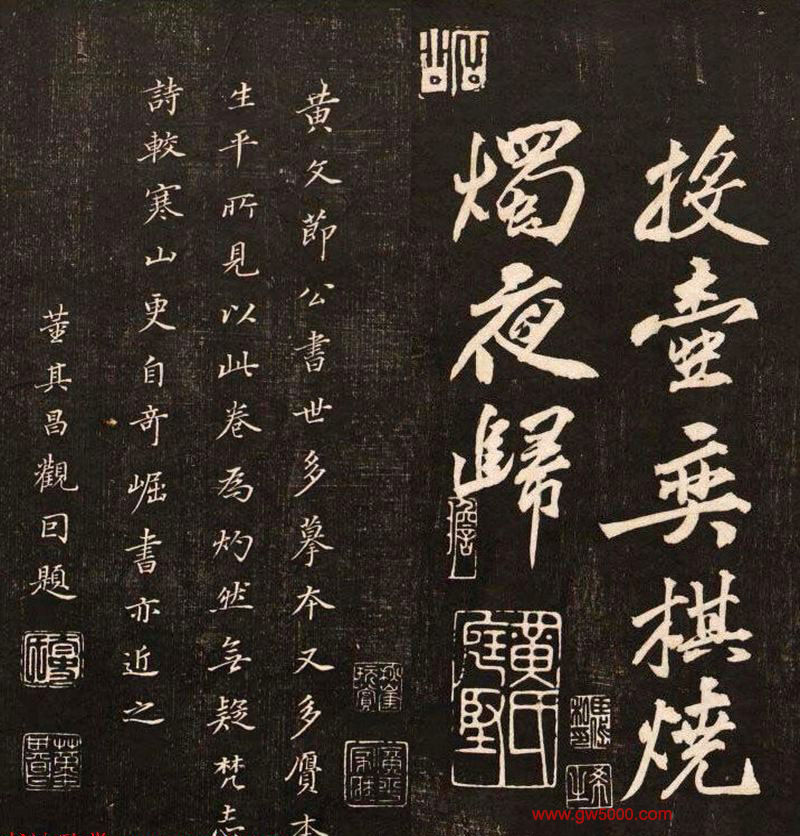 投壺奕棋燒
燭夜歸
黃氏庭堅
黃文節公書世多摹本又多贋本
生平所見以此卷為灼然無疑梵志
詩較寒山更自奇崛書亦近之
董其昌觀回題
www.gw5000.com